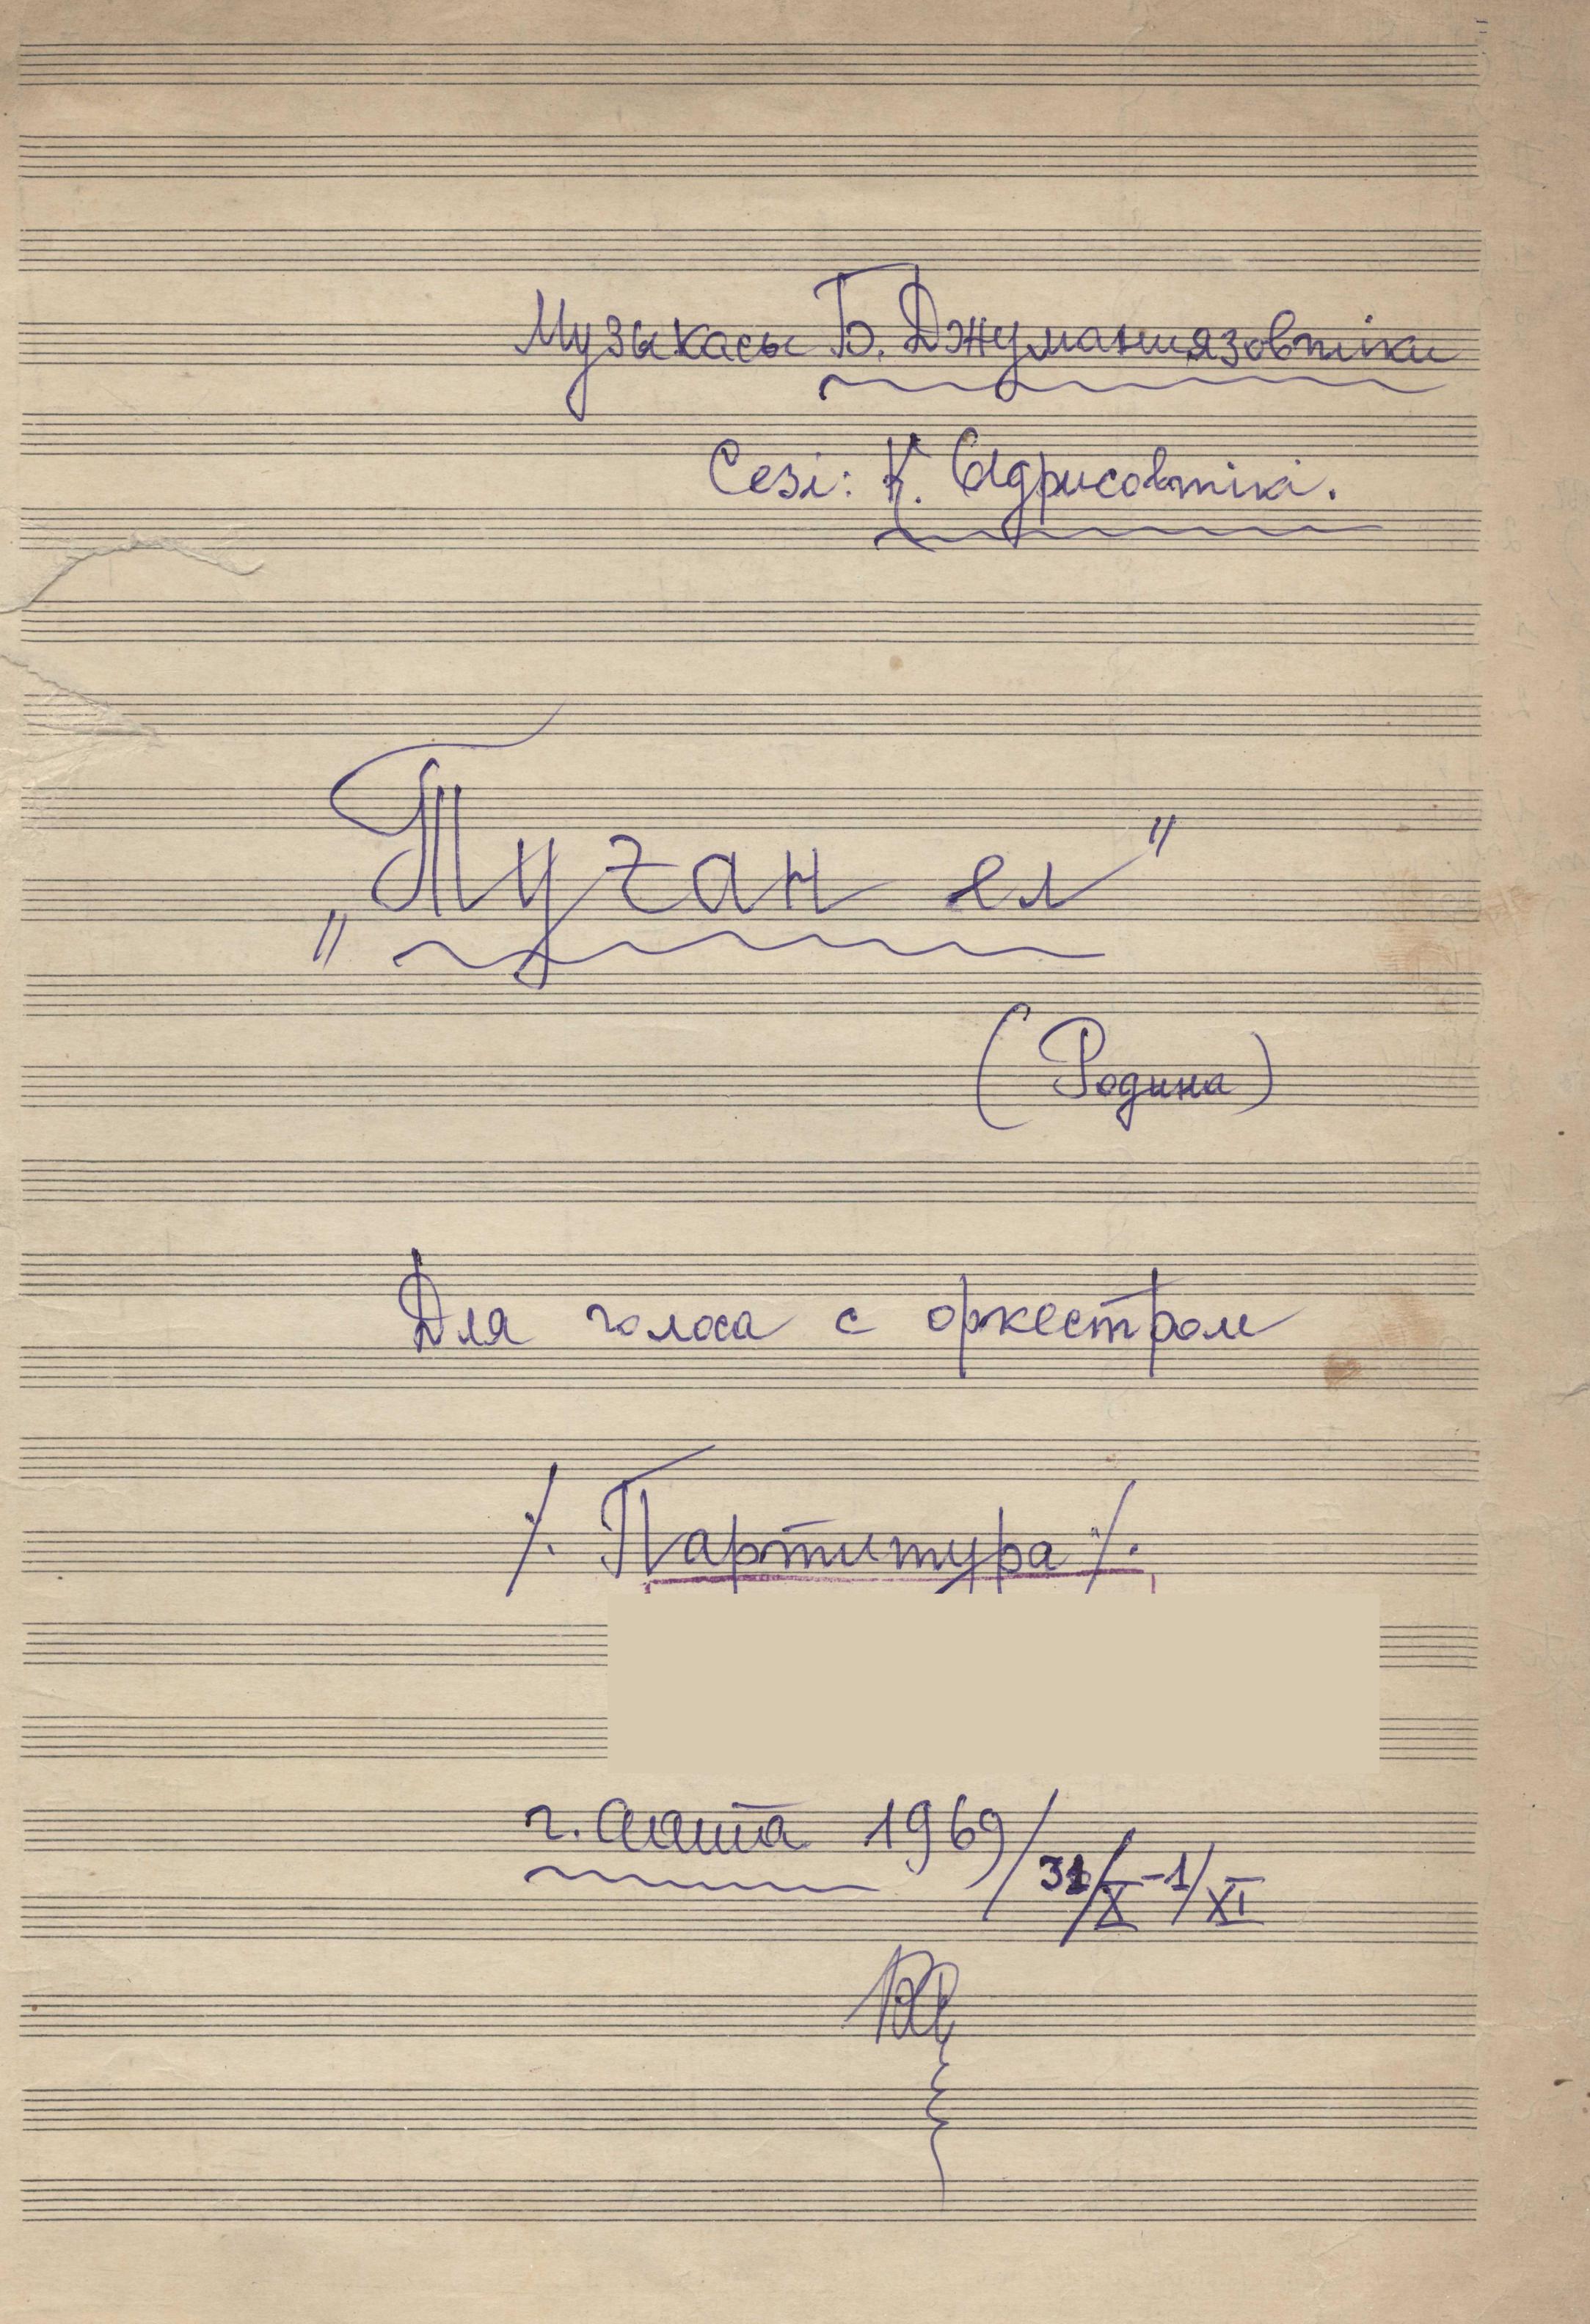 Музыкасы Б. Джуманиязовтікі
Сезі: К. Ыдрисовтікі.
„Туған ел"
(Родина)
Для голоса с оркестром
/. Партитура /.
г. Алмата 1969/31/X-1/XI